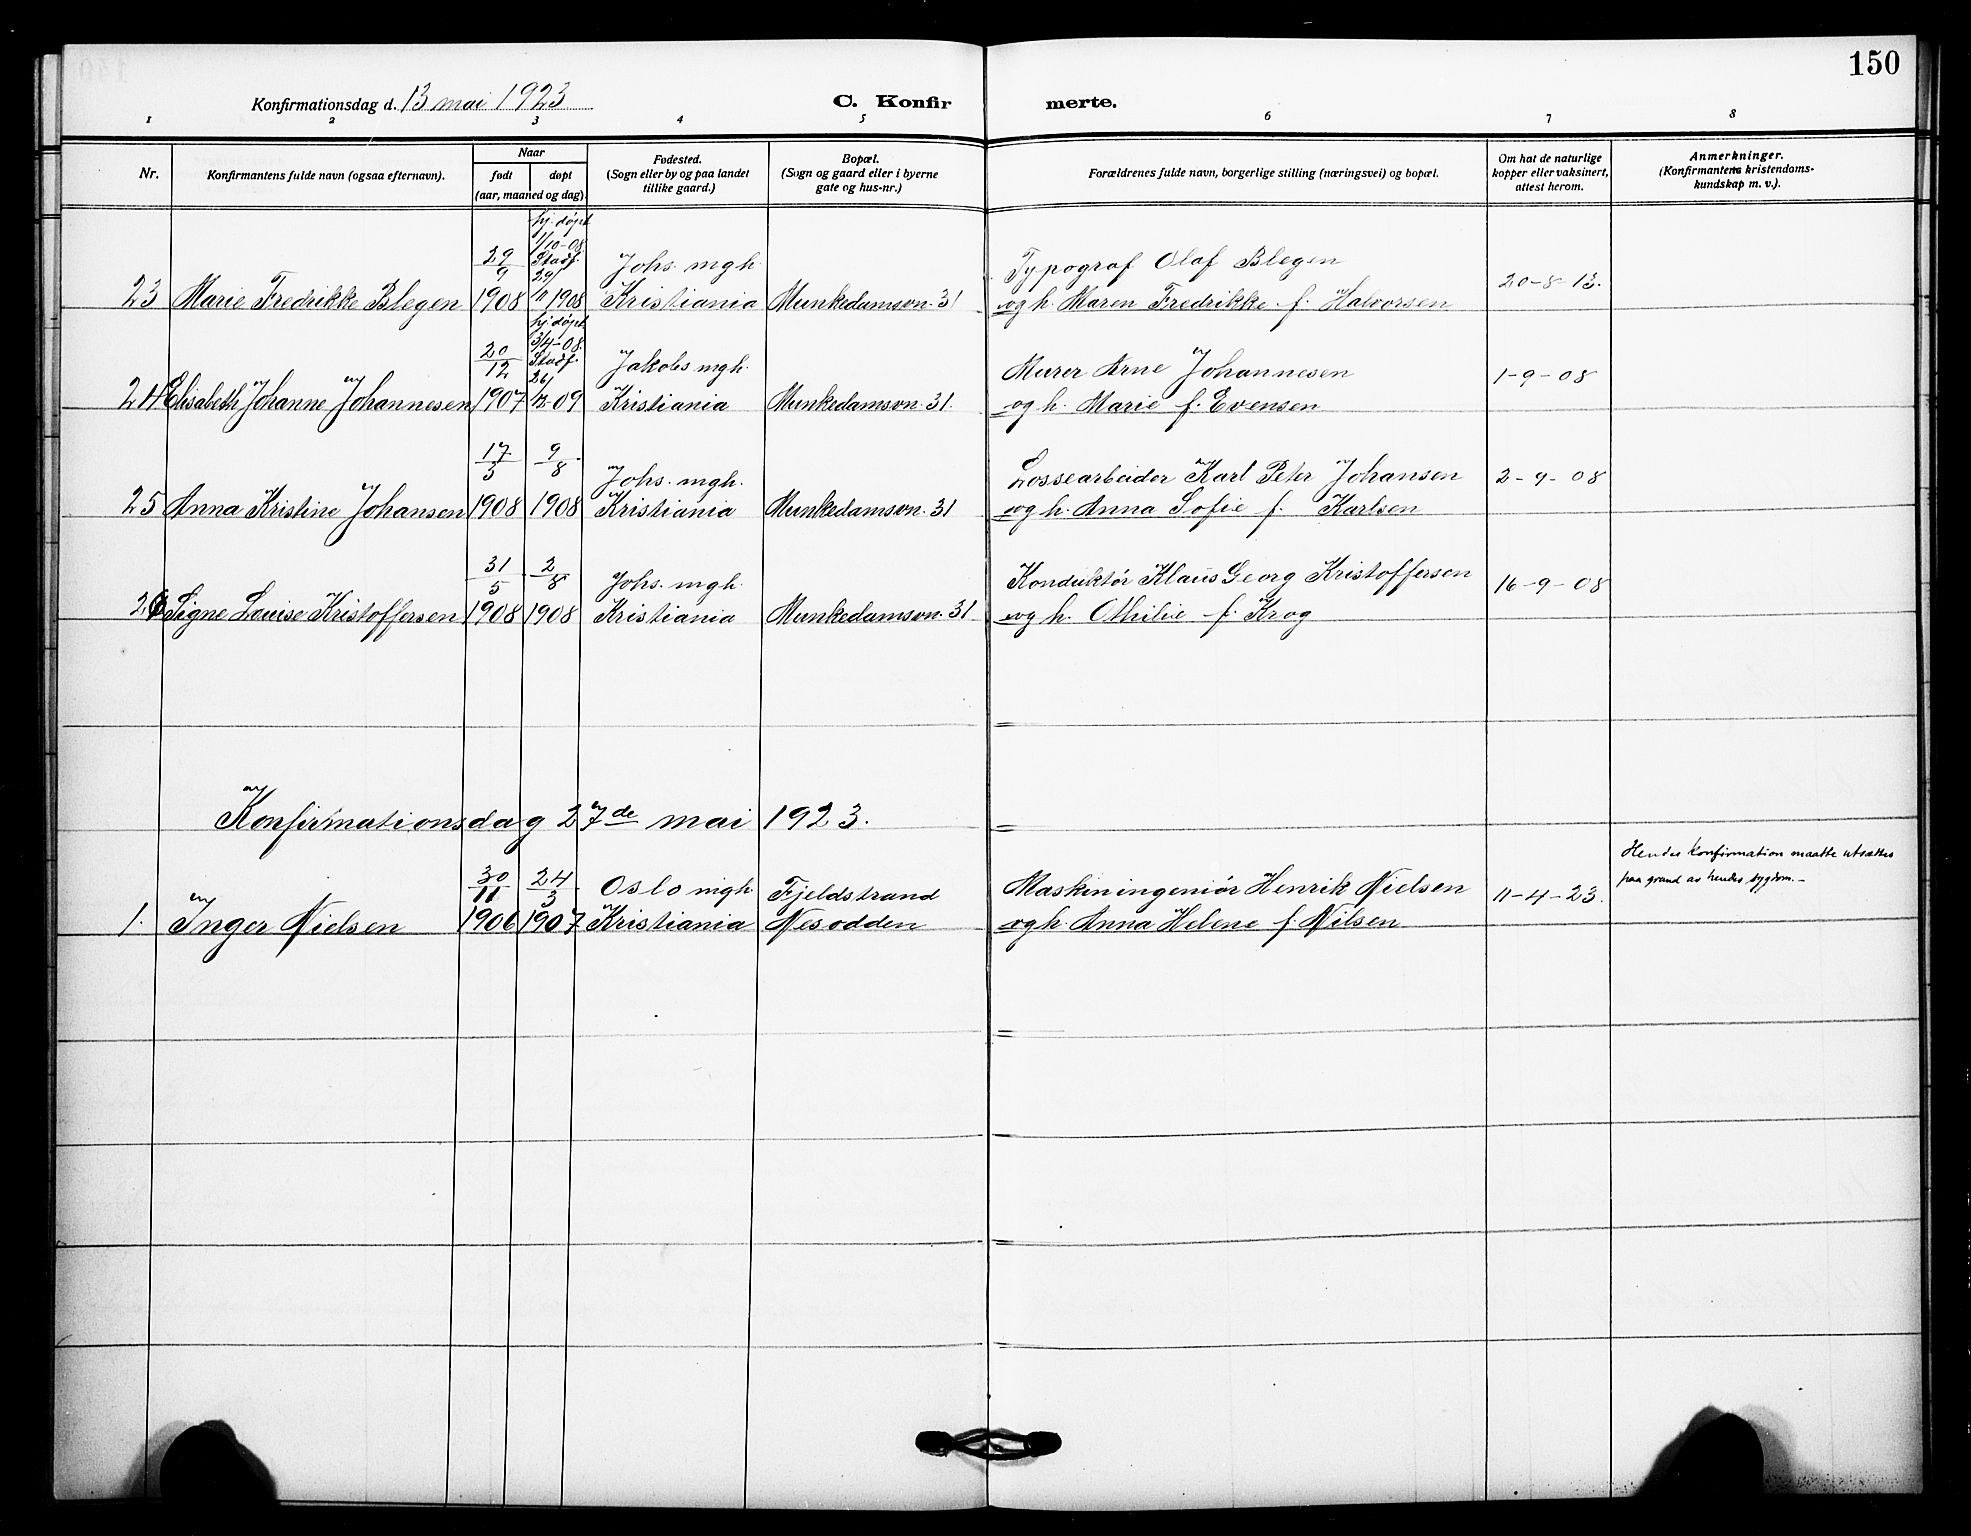 150
Konfirmationsdag d. 13 mai 1923
C. Konfir merte.
1 2 3 4 5 6 7 8
Nr.
Konfirmantens fulde navn (ogsaa efternavn).
Naar
født døpt
(aar, maaned og dag).
Fødested.
(Sogn eller by og paa landet
tillike gaard.)
Bopæl.
(Sogn og gaard eller i byerne
gate og hus-nr.)
Forældrenes fulde navn, borgerlige stilling (næringsvei) og bopæl.
Om hat de naturlige
kopper eller vaksinert,
attest herom.
Anmerkninger.
(Konfirmantens kristendoms-
kundskap m. v.).
hj. døpt
1/10-08
29/9 Stadf. Johs. mgh. Typograf Olaf Blegen
29/
23 Marie Fredrikke Blegen 1908 11 1908 Kristiania Munkedamsvn. 31 og h. Maren Fredrikke f. Halvorsen 20-8-13.
hj. døpt
3/4-08.
20/12 Stadf. Jakobs mgh. Murer Arne Johannesen
26/
24 Elisabeth Johanne Johannesen 1907 12-09 Kristiania Munkedamsvn. 31. og h. Marie f. Evensen 1-9-08
17/3 9/8 Johs. mgh. Lossearbeider Karl Peter Johansen 2-9-08
25 Anna Kristine Johansen 1908 1908 Kristiania Munkedamsvn. 31 og h. Anna Sofie f. Karlsen
31/5 2/8 Johs. mgh. Konduktør Klaus Georg Kristoffersen 16-9-08
26 Signe Louise Kristoffersen 1908 1908 Kristiania Munkedamsvn. 31 og h. Othilie f. Krog
Konfirmationsdag 27de mai 1923.
Hendes konfirmation maatte utsættes
paa grund av hendes sygdom.-
30/11 24/3 Oslo mgh. Fjeldstrand Maskiningeniør Henrik Nielsen 11-4-23.
1. Inger Nielsen 1906 1907 Kristiania Nesodden og h. Anna Helene f. Nilsen